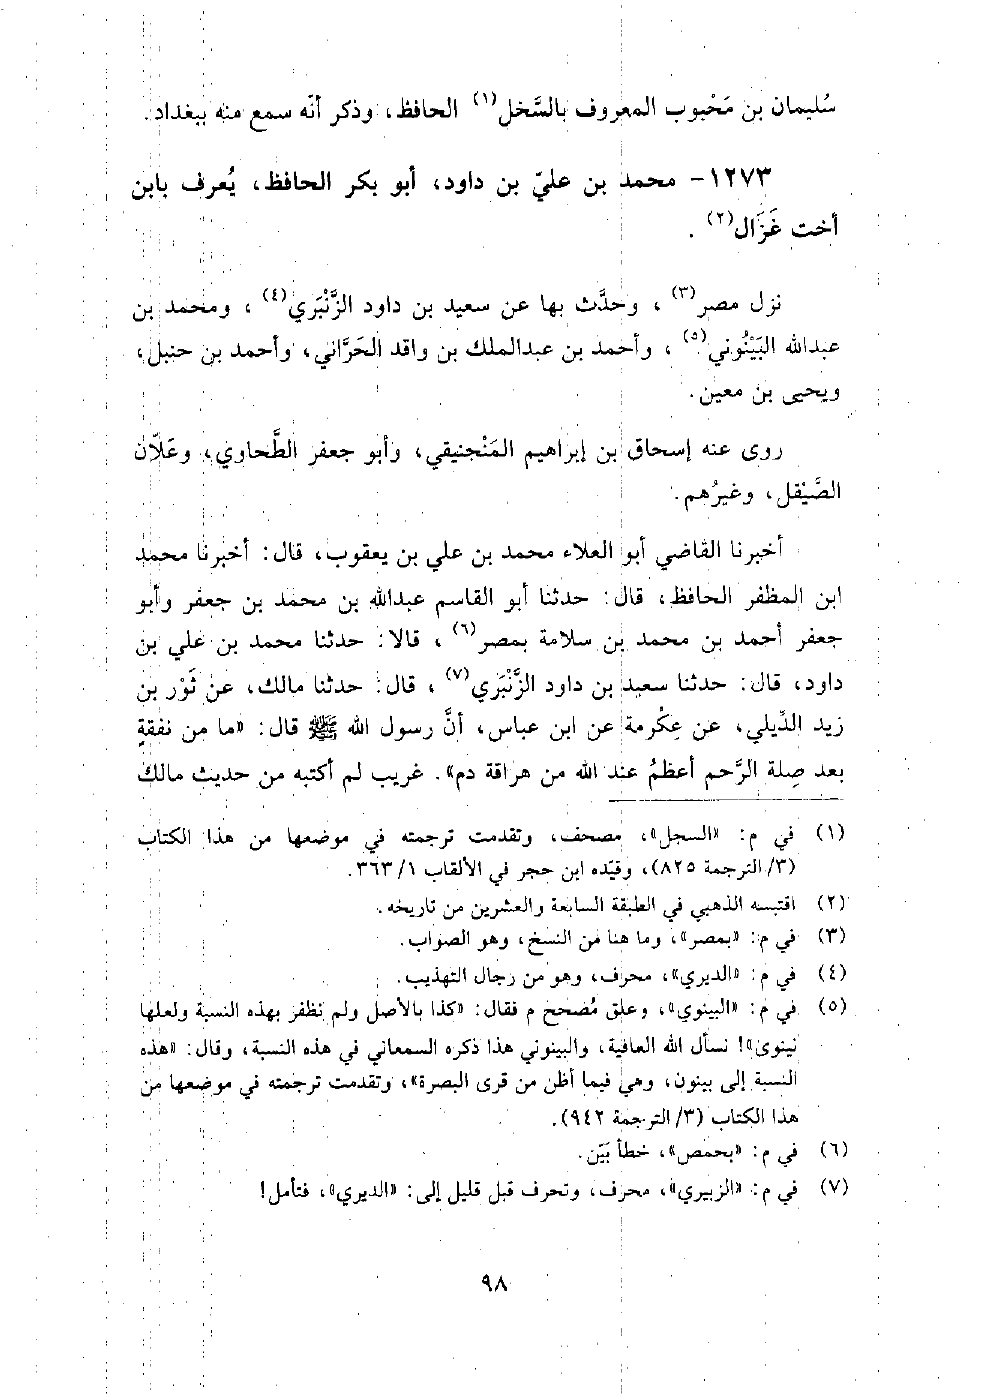 سُليمان بن مَحْبوب المعروف بالسَّخل(١) الحافظ، وذكر أنّه سمع منه ببغداد.
١٢٧٣- محمد بن عليّ بن داود، أبو بكر الحافظ، يُعرف بابن
أخت غَزَال(٢).
نزل مصر(٣)، وحدَّث بها عن سعيد بن داود الزَّنْبَري(٤)، ومحمد بن
عبدالله البَيْنُوني(٥)، وأحمد بن عبدالملك بن واقد الحَرَّاني، وأحمد بن حنبل،
ويحيى بن معين.
روى عنه إسحاق بن إبراهيم المَنْجنيقي، وأبو جعفر الطَّحاوي، وعَلّان
الصَّيْقل، وغيرُهم.
أخبرنا القاضي أبو العلاء محمد بن علي بن يعقوب، قال: أخبرنا محمد
ابن المظفر الحافظ، قال: حدثنا أبو القاسم عبدالله بن محمد بن جعفر وأبو
جعفر أحمد بن محمد بن سلامة بمصر(٦)، قالا: حدثنا محمد بن علي بن
داود، قال: حدثنا سعيد بن داود الزَّنْبَري(٧)، قال: حدثنا مالك، عن ثَوْر بن
زيد الدِّيلي، عن عِكْرمة عن ابن عباس، أنَّ رسول الله ﷺ قال: «ما من نفقةٍ
بعد صِلة الرَّحم أعظمُ عند الله من هراقة دم». غريب لم أكتبه من حديث مالك
(١) في م: «السجل»، مصحف، وتقدمت ترجمته في موضعها من هذا الكتاب
(٣/ الترجمة ٨٢٥)، وقيّده ابن حجر في الألقاب ١/ ٣٦٣.
(٢) اقتبسه الذهبي في الطبقة السابعة والعشرين من تاريخه.
(٣) في م: «بمصر»، وما هنا من النسخ، وهو الصواب.
(٤) في م: «الديري»، محرف، وهو من رجال التهذيب.
(٥) في م: «البينوي»، وعلق مُصحح م فقال: «كذا بالأصل ولم نظفر بهذه النسبة ولعلها
نينوى»! نسأل الله العافية، والبينوني هذا ذكره السمعاني في هذه النسبة، وقال: «هذه
النسبة إلى بينون، وهي فيما أظن من قرى البصرة»، وتقدمت ترجمته في موضعها من
هذا الكتاب (٣/ الترجمة ٩٤٢).
(٦) في م: «بحمص»، خطأ بَيّن.
(٧) في م: «الزبيري»، محرف، وتحرف قبل قليل إلى: «الديري»، فتأمل!
٩٨